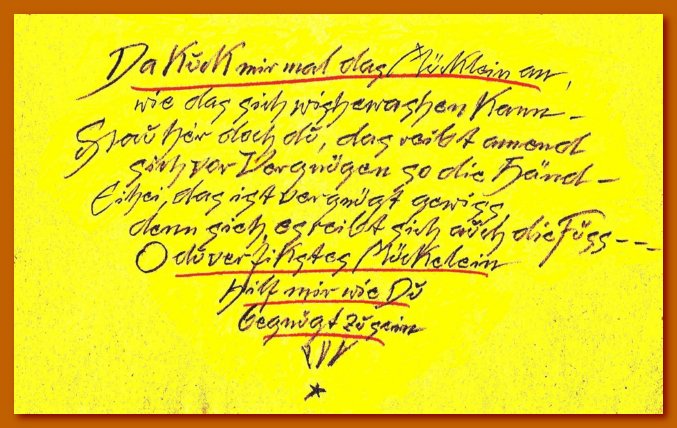 Da kuck mir mal das Mücklein an,
wie das sich wishewashen kann –
Schau her doch du, das reibt amend
sich vor Vergnügen so die Händ –
Eihei, das ist vergnügt gewiss
denn sieh, es reibt sich auch die Füss – – –
O du verfikstes Mückelein
Hilf mir wie Du
begnügt zu sein